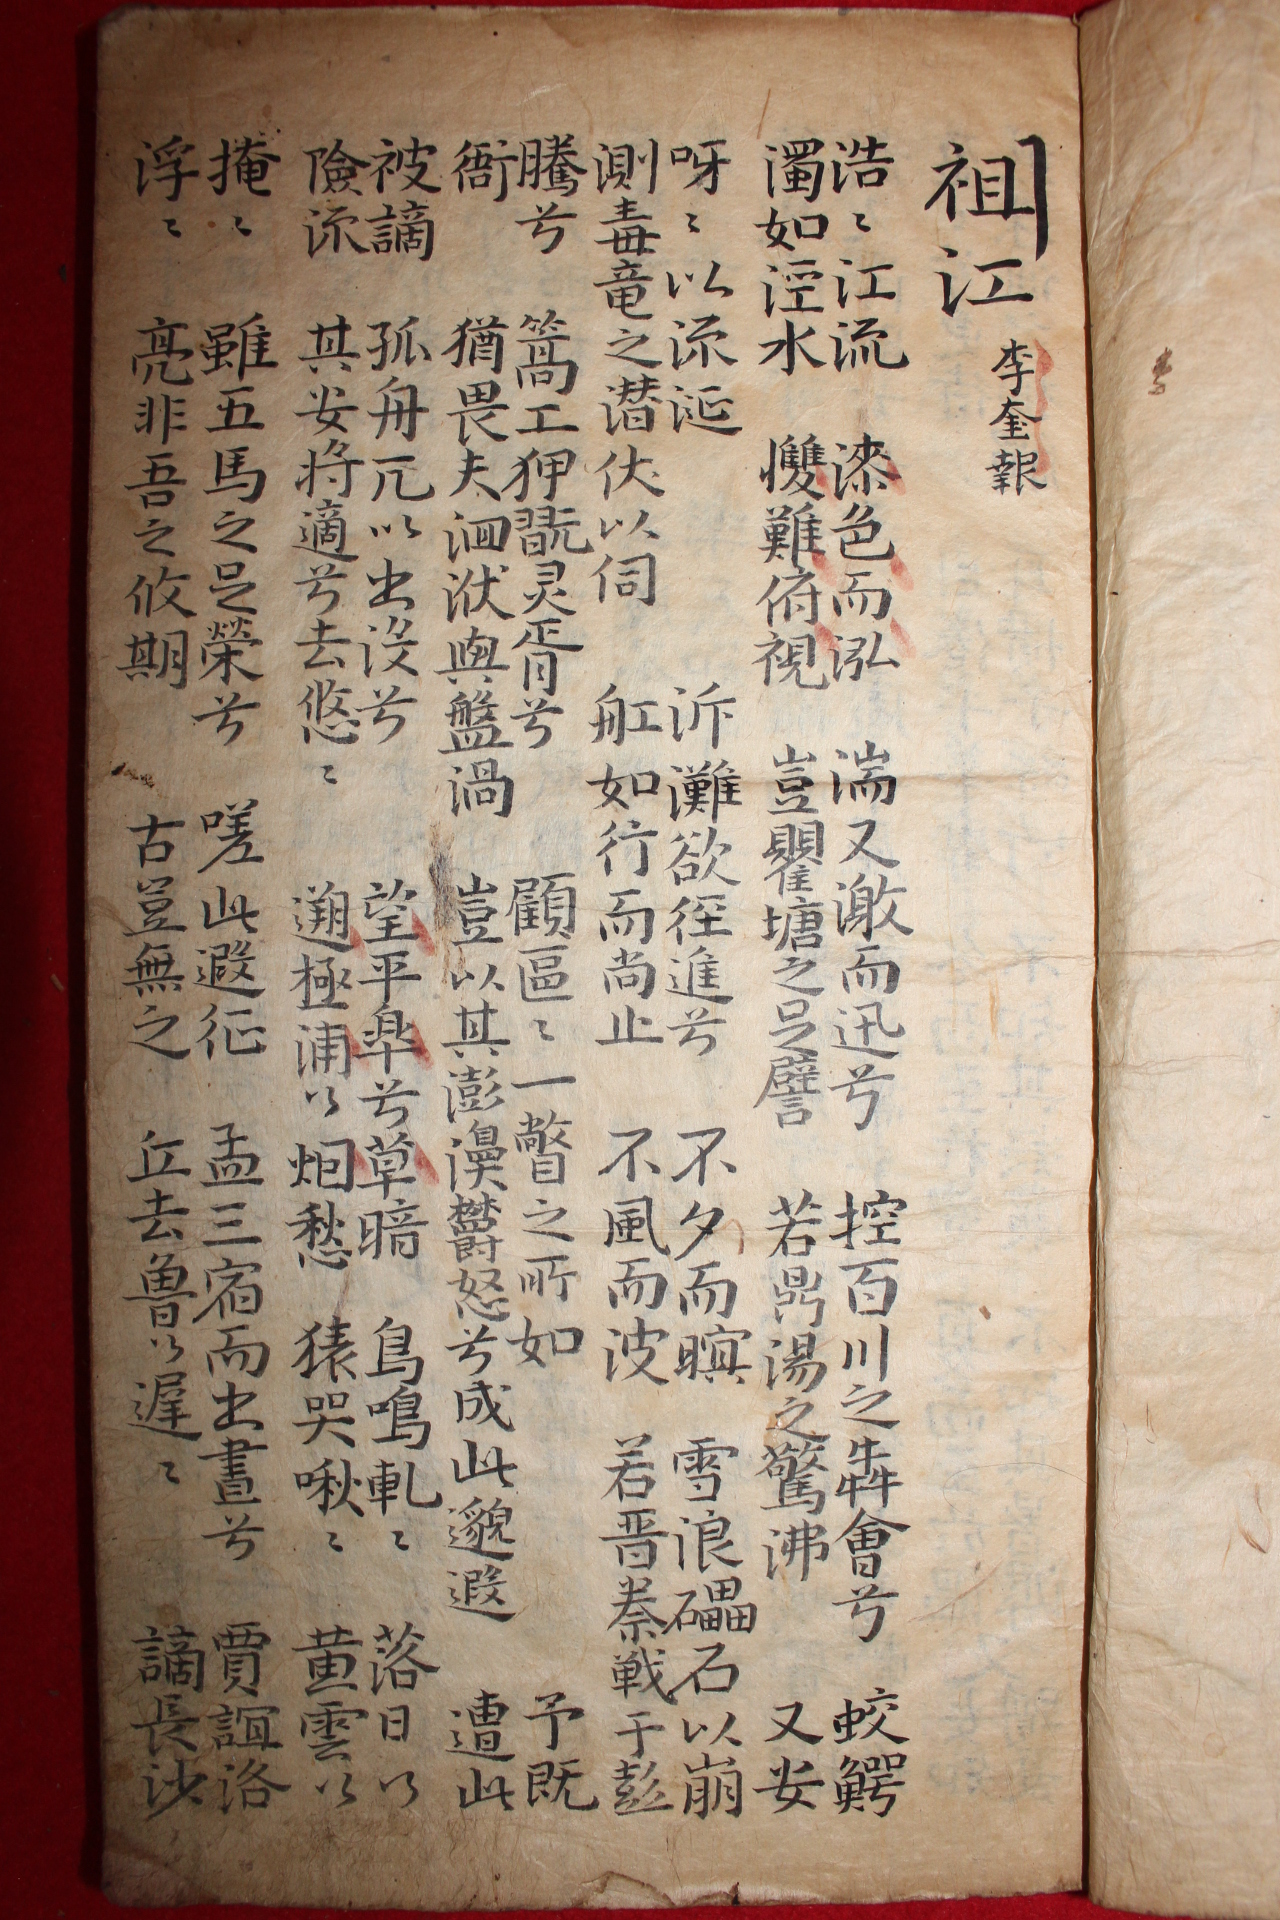 祖江 李奎報
浩〻江流 漆色而泓 湍又激而迅兮 控百川之犇會兮 蛟鰐
濁如涇水 𢥠難俯視 豈瞿塘之足譬 若鼎湯之驚沸 又安
呀〻以流涎 泝灘欲徑進兮 不夕而暝 雪浪礧石以崩
測毒竜之潜伏以伺 舡如行而尚止 不風而波 若晋秦戦于彭
騰兮 篙工狎翫灵胥兮 顧區〻一瞥之所如 予既
衙 猶畏夫洄洑與盤渦 豈以其澎濞欝怒兮成此邈遐 遭此
被謫 孤舟兀以出没兮 望平皐兮草暗 鳥鳴軋〻 落日以
險流 其安将適兮去悠〻 遡極浦以烟愁 猿哭啾〻 黄雲以
掩〻 雖五馬之足榮兮 嗟此遐征 孟三宿而出晝兮 賈誼洛
浮〻 亮非吾之攸期 古豈無之 丘去魯以遲〻 謫長沙